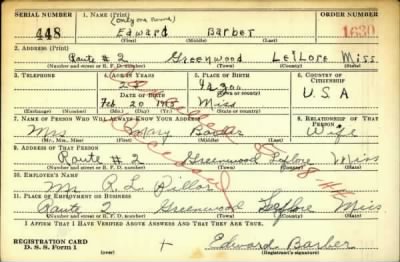 SERIAL NUMBER 1. NAME (Print) ORDER NUMBER
(only one name)
448 Edward Barber 1630
(First) (Middle) (Last)
2. ADDRESS (Print)
Route # 2 Greenwood Leflore Miss
(Number and street or R. F. D. number) (Town) (County) (State)
3. TELEPHONE 4. AGE IN YEARS 5. PLACE OF BIRTH 6. COUNTRY OF CITIZENSHIP
Yazoo
(Town or county)
DATE OF BIRTH U S A
Feb 20 Miss
(Exchange) (Number) (Mo.) (Day) (Yr.) (State or country)
7. NAME OF PERSON WHO WILL ALWAYS KNOW YOUR ADDRESS 8. RELATIONSHIP OF THAT PERSON
Mrs Mary Wife
(Mr., Mrs., Miss) (First) (Middle) (Last)
9. ADDRESS OF THAT PERSON
Route # 2 Greenwood Leflore Miss
(Number and street or R. F. D. number) (Town) (County) (State)
10. EMPLOYER'S NAME
Mr. R. L.
11. PLACE OF EMPLOYMENT OR BUSINESS
Route 2 Greenwood Leflore Miss
(Number and street or R. F. D. number) (Town) (County) (State)
I AFFIRM THAT I HAVE VERIFIED ABOVE ANSWERS AND THAT THEY ARE TRUE.
REGISTRATION CARD
D. S. S. Form 1 (over) + Edward Barber
(Registrant's signature)